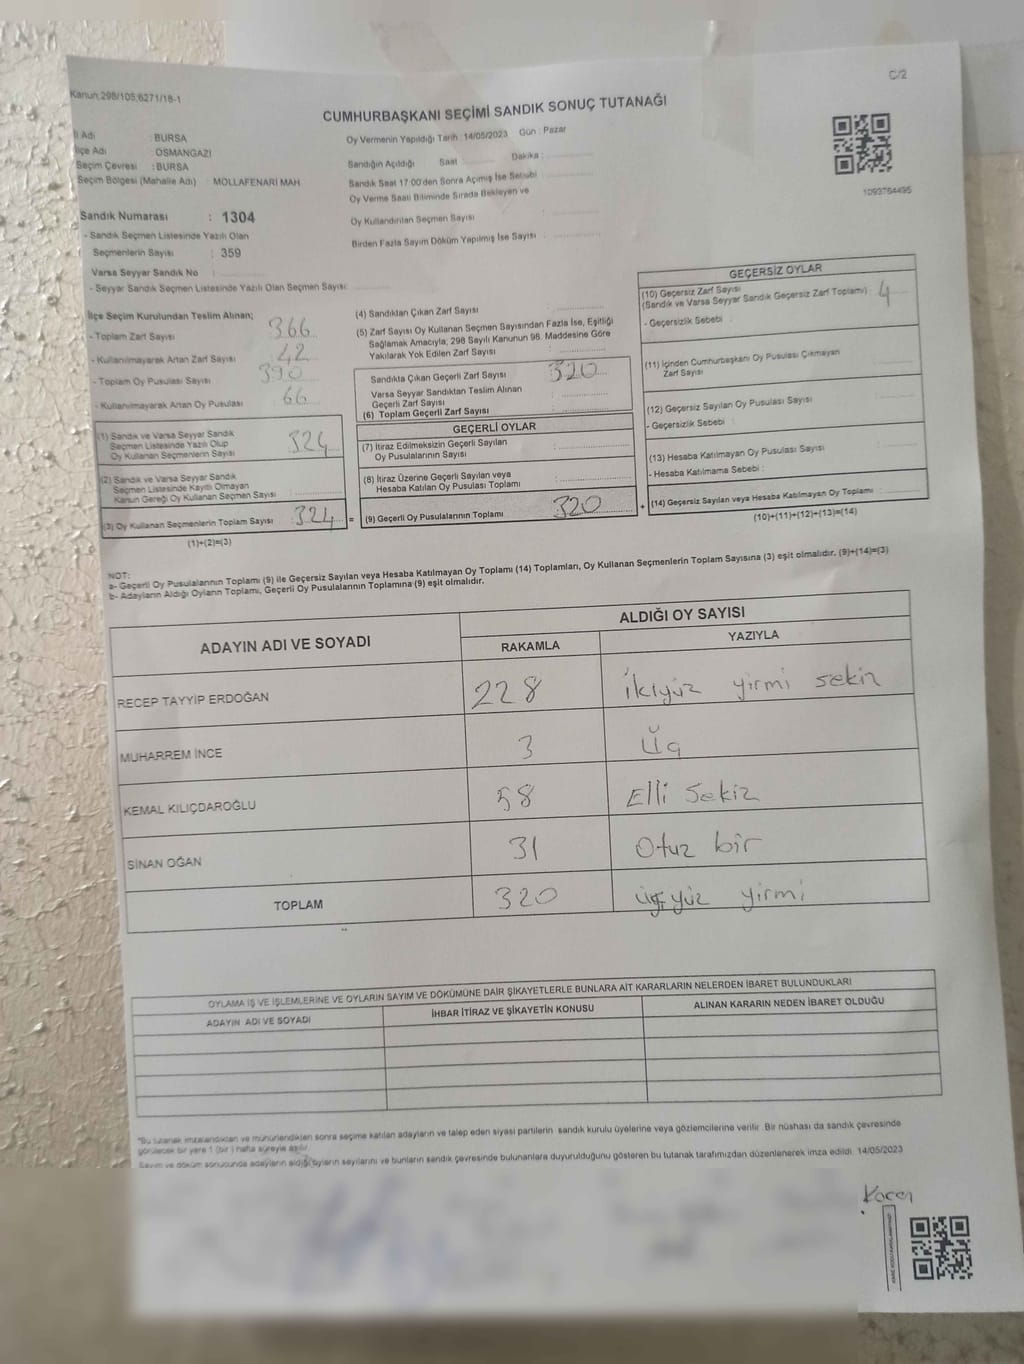 Kanun;298/105;6271/18-1
C/2
CUMHURBAŞKANI SEÇİMİ SANDIK SONUÇ TUTANAĞI
İl Adı : BURSA
İlçe Adı : OSMANGAZİ
Seçim Çevresi : BURSA
Seçim Bölgesi (Mahalle Adı) : MOLLAFENARİ MAH.
Sandık Numarası : 1304
- Sandık Seçmen Listesinde Yazılı Olan
Seçmenlerin Sayısı : 359
Varsa Seyyar Sandık No :
- Seyyar Sandık Seçmen Listesinde Yazılı Olan Seçmen Sayısı:
Oy Vermenin Yapıldığı Tarih :14/05/2023 Gün : Pazar
Sandığın Açıldığı Saat : Dakika :
Sandık Saat 17:00'den Sonra Açımış İse Sebebi
Oy Verme Saati Bitiminde Sırada Bekleyen ve
Oy Kullandırılan Seçmen Sayısı :
Birden Fazla Sayım Döküm Yapılmış İse Sayısı :
1093764495
İlçe Seçim Kurulundan Teslim Alınan;
- Toplam Zarf Sayısı : 366
- Kullanılmayarak Artan Zarf Sayısı : 42
- Toplam Oy Pusulası Sayısı : 390
- Kullanılmayarak Artan Oy Pusulası : 66
(1) Sandık ve Varsa Seyyar Sandık
Seçmen Listesinde Yazılı Olup
Oy Kullanan Seçmenlerin Sayısı : 324
(2) Sandık ve Varsa Seyyar Sandık
Seçmen Listesinde Kayıtlı Olmayan
Kanun Gereği Oy Kullanan Seçmen Sayısı :
(3) Oy Kullanan Seçmenlerin Toplam Sayısı : 324 =
(1)+(2)=(3)
(4) Sandıktan Çıkan Zarf Sayısı :
(5) Zarf Sayısı Oy Kullanan Seçmen Sayısından Fazla İse, Eşitliği
Sağlamak Amacıyla; 298 Sayılı Kanunun 98. Maddesine Göre
Yakılarak Yok Edilen Zarf Sayısı :
Sandıkta Çıkan Geçerli Zarf Sayısı : 320
Varsa Seyyar Sandıktan Teslim Alınan
Geçerli Zarf Sayısı :
(6) Toplam Geçerli Zarf Sayısı :
GEÇERLİ OYLAR
(7) İtiraz Edilmeksizin Geçerli Sayılan
Oy Pusulalarının Sayısı :
(8) İtiraz Üzerine Geçerli Sayılan veya
Hesaba Katılan Oy Pusulası Toplamı :
(9) Geçerli Oy Pusulalarının Toplamı : 320 +
GEÇERSİZ OYLAR
(10) Geçersiz Zarf Sayısı
(Sandık ve Varsa Seyyar Sandık Geçersiz Zarf Toplamı) : 4
- Geçersizlik Sebebi :
(11) İçinden Cumhurbaşkanı Oy Pusulası Çıkmayan
Zarf Sayısı :
(12) Geçersiz Sayılan Oy Pusulası Sayısı :
- Geçersizlik Sebebi :
(13) Hesaba Katılmayan Oy Pusulası Sayısı :
- Hesaba Katılmama Sebebi :
(14) Geçersiz Sayılan veya Hesaba Katılmayan Oy Toplamı :
(10)+(11)+(12)+(13)=(14)
NOT:
a- Geçerli Oy Pusulalarının Toplamı (9) ile Geçersiz Sayılan veya Hesaba Katılmayan Oy Toplamı (14) Toplamları, Oy Kullanan Seçmenlerin Toplam Sayısına (3) eşit olmalıdır. (9)+(14)=(3)
b- Adayların Aldığı Oyların Toplamı, Geçerli Oy Pusulalarının Toplamına (9) eşit olmalıdır.
ADAYIN ADI VE SOYADI
ALDIĞI OY SAYISI
RAKAMLA
YAZIYLA
RECEP TAYYİP ERDOĞAN 228 ikiyüz yirmi sekiz
MUHARREM İNCE 3 Üç
KEMAL KILIÇDAROĞLU 58 Elli Sekiz
SİNAN OĞAN 31 Otuz bir
TOPLAM 320 üçyüz yirmi
OYLAMA İŞ VE İŞLEMLERİNE VE OYLARIN SAYIM VE DÖKÜMÜNE DAİR ŞİKAYETLERLE BUNLARA AİT KARARLARIN NELERDEN İBARET BULUNDUKLARI
ADAYIN ADI VE SOYADI
İHBAR İTİRAZ VE ŞİKAYETİN KONUSU
ALINAN KARARIN NEDEN İBARET OLDUĞU
*Bu tutanak imzalandıktan ve mühürlendikten sonra seçime katılan adayların ve talep eden siyasi partilerin sandık kurulu üyelerine veya gözlemcilerine verilir. Bir nüshası da sandık çevresinde
görülecek bir yere 1 (bir ) hafta süreyle asılır.
Sayım ve döküm sonucunda adayların aldığı oyların sayılarını ve bunların sandık çevresinde bulunanlara duyurulduğunu gösteren bu tutanak tarafımızdan düzenlenerek imza edildi. 14/05/2023